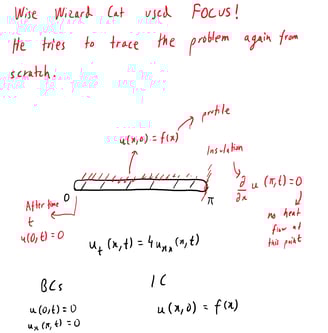 Wise Wizard Cat used FOCUS!
He tries to trace the problem again from
scratch.
profile
u(x,0) = f(x)
Insulation
∂/∂x u(π,t) = 0
0
π
After time
t
u(0,t) = 0
no heat
flow at
this point
u_t(x,t) = 4u_xx(x,t)
BCs
IC
u(0,t) = 0
u_x(π,t) = 0
u(x,0) = f(x)